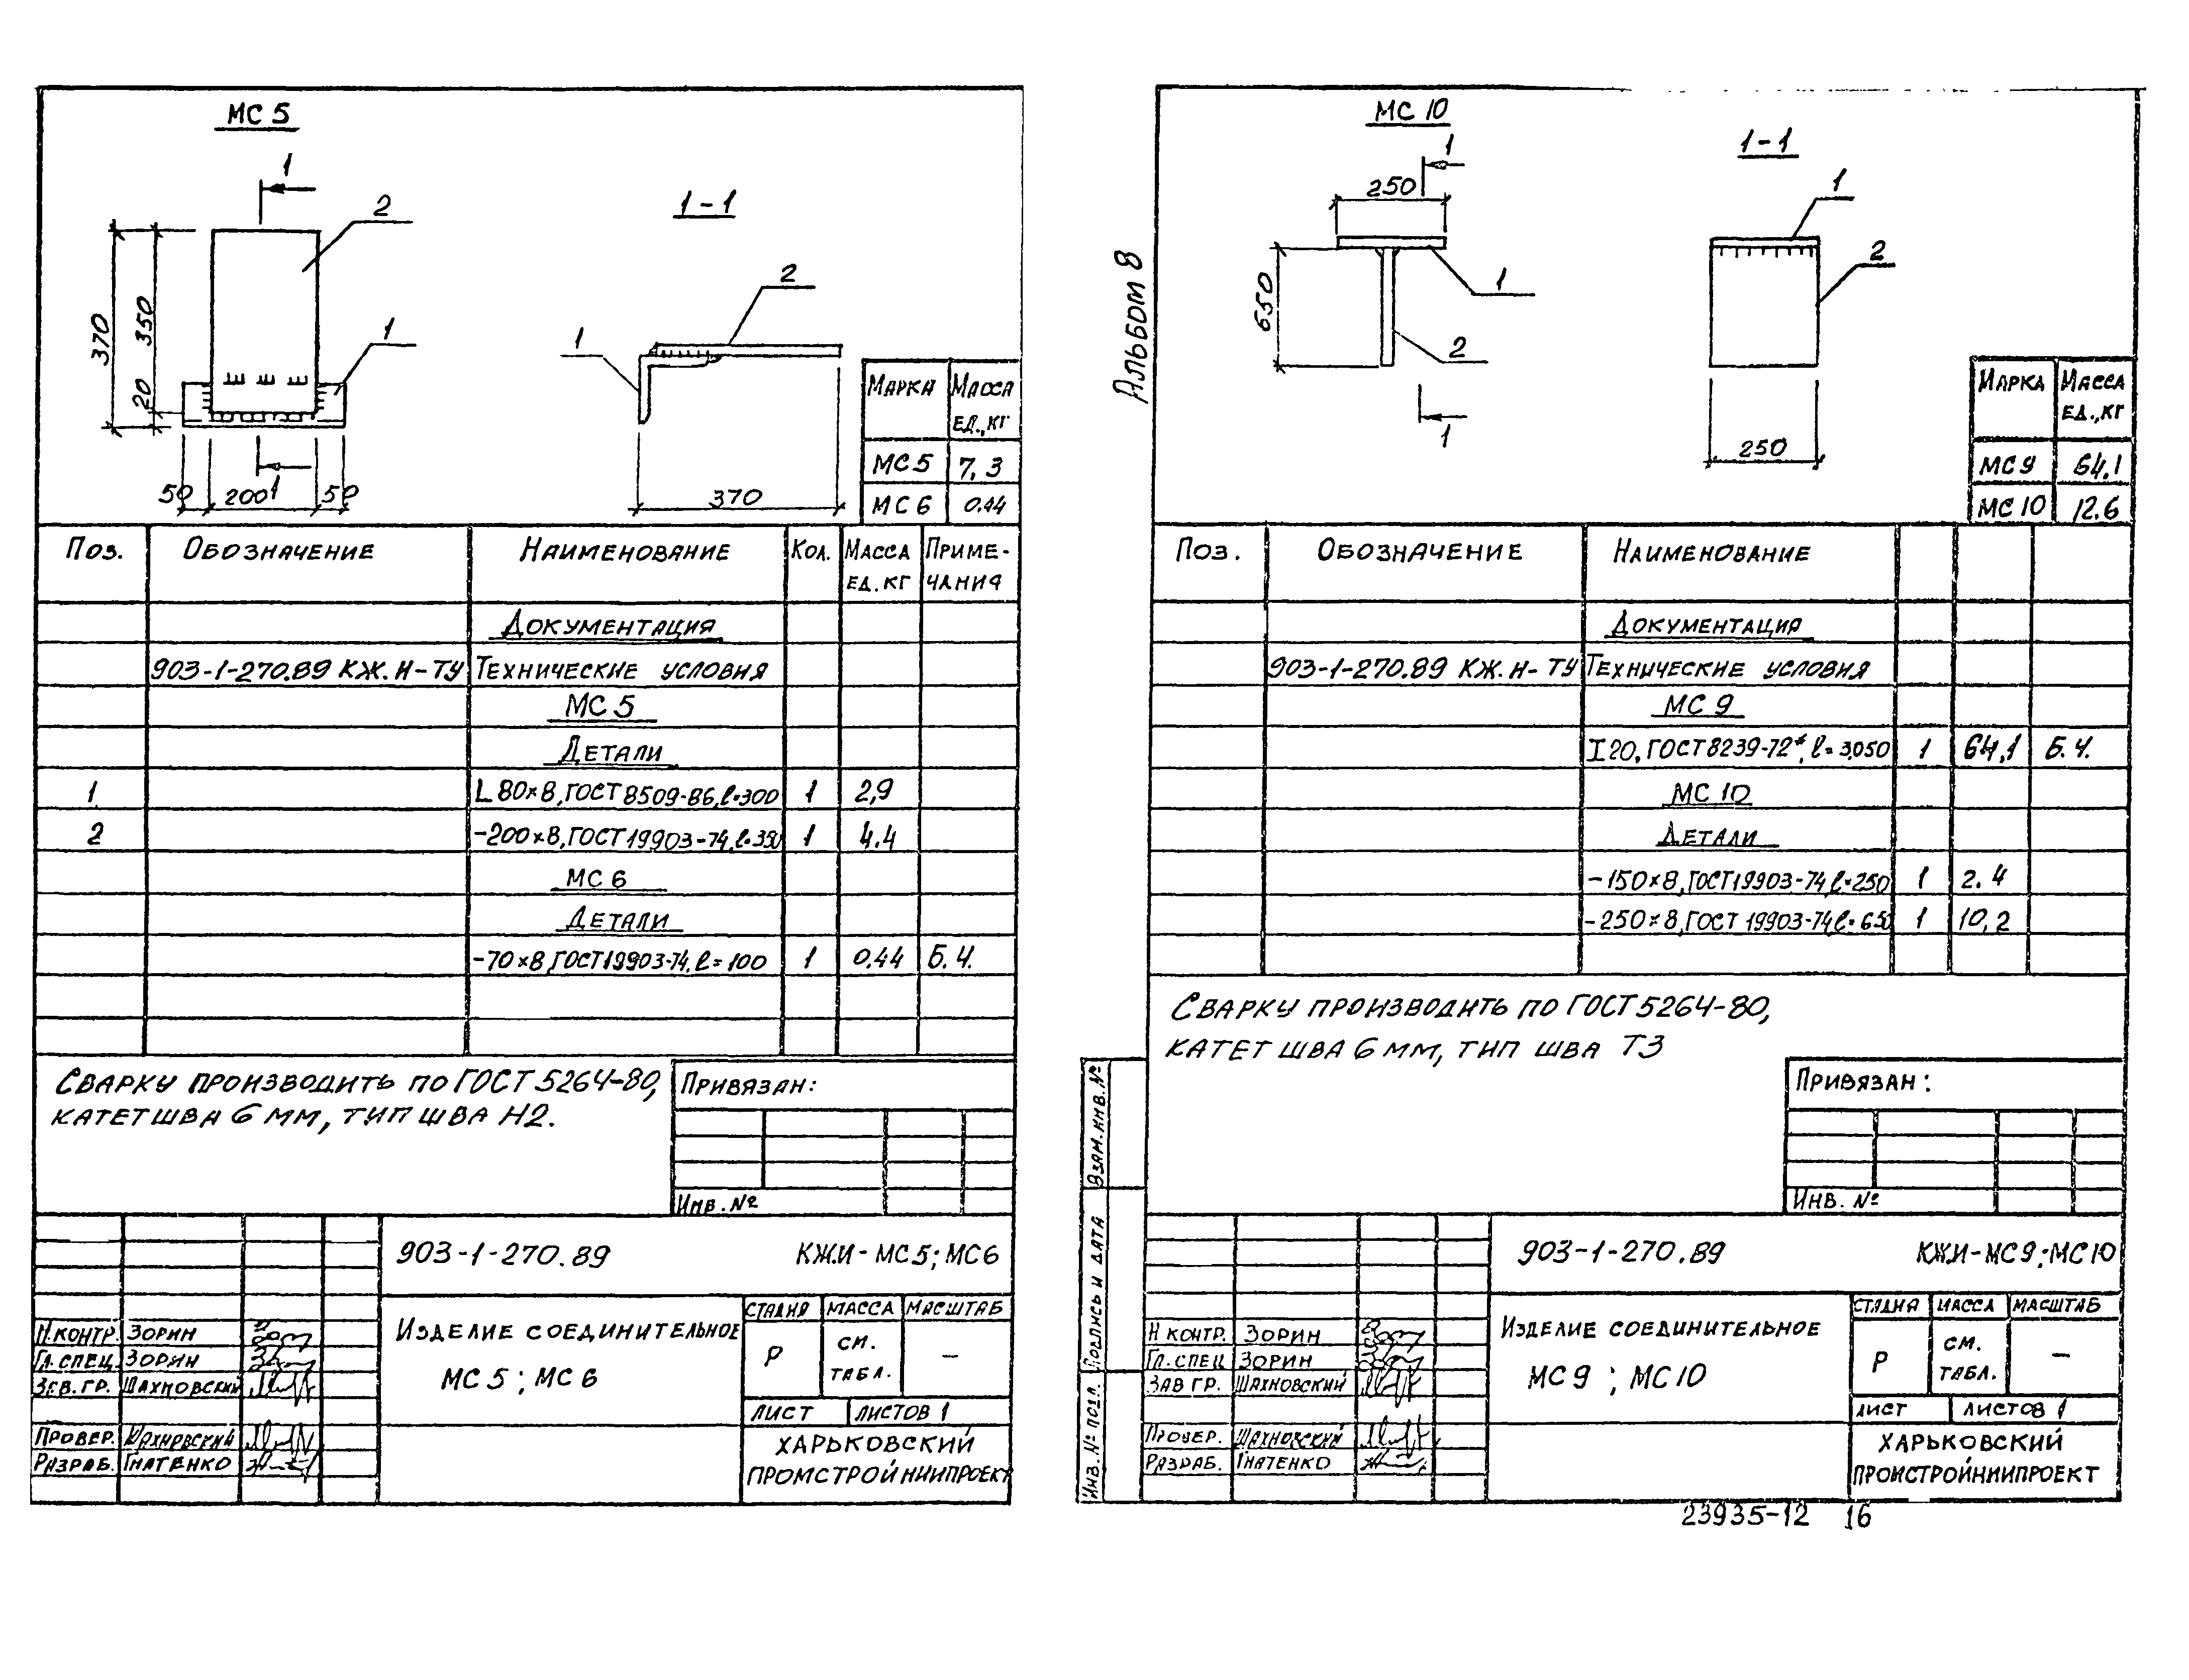 МС 5
1
2
1-1
370
350
20
1
2
1
50
200
1
50
370
МАРКА
МАССА ЕД., КГ
МС 5
7,3
МС 6
0.44
ПОЗ.
ОБОЗНАЧЕНИЕ
НАИМЕНОВАНИЕ
КОЛ.
МАССА ЕД. КГ
ПРИМЕ-
ЧАНИЯ
ДОКУМЕНТАЦИЯ
903-1-270.89 КЖ.И-ТУ ТЕХНИЧЕСКИЕ УСЛОВИЯ
МС 5
ДЕТАЛИ
1 L 80×8, ГОСТ 8509-86, ℓ=300 1 2,9
2 -200×8, ГОСТ 19903-74, ℓ=350 1 4.4
МС 6
ДЕТАЛИ
-70×8, ГОСТ 19903-74, ℓ=100 1 0.44 Б.Ч.
СВАРКУ ПРОИЗВОДИТЬ ПО ГОСТ 5264-80,
КАТЕТ ШВА 6 ММ, ТИП ШВА Н2.
ПРИВЯЗАН:
ИНВ. №
903-1-270.89 КЖИ-МС 5; МС 6
ИЗДЕЛИЕ СОЕДИНИТЕЛЬНОЕ
МС 5 ; МС 6
СТАДИЯ МАССА МАСШТАБ
Р
СМ.
ТАБЛ.
—
ЛИСТ ЛИСТОВ 1
ХАРЬКОВСКИЙ
ПРОМСТРОЙНИИПРОЕКТ
Н.КОНТР. ЗОРИН
ГЛ.СПЕЦ. ЗОРИН
ЗАВ. ГР. ШАХНОВСКИЙ
ПРОВЕР. ШАХНОВСКИЙ
РАЗРАБ. ГНАТЕНКО
АЛЬБОМ 8
МС 10
1
250
1-1
1
2
650
1
2
1
250
МАРКА
МАССА ЕД., КГ
МС 9
64.1
МС 10
12.6
ПОЗ.
ОБОЗНАЧЕНИЕ
НАИМЕНОВАНИЕ
ДОКУМЕНТАЦИЯ
903-1-270.89 КЖ.И-ТУ ТЕХНИЧЕСКИЕ УСЛОВИЯ
МС 9
I 20, ГОСТ 8239-72*, ℓ=3050 1 64,1 Б.Ч.
МС 10
ДЕТАЛИ
-150×8, ГОСТ 19903-74, ℓ=250 1 2.4
-250×8, ГОСТ 19903-74, ℓ=650 1 10,2
СВАРКУ ПРОИЗВОДИТЬ ПО ГОСТ 5264-80,
КАТЕТ ШВА 6 ММ, ТИП ШВА Т3
ПРИВЯЗАН:
ИНВ. №
ВЗАМ. ИНВ. №
ПОДПИСЬ И ДАТА
ИНВ. № ПОДЛ.
903-1-270.89 КЖИ-МС 9; МС 10
ИЗДЕЛИЕ СОЕДИНИТЕЛЬНОЕ
МС 9 ; МС 10
СТАДИЯ МАССА МАСШТАБ
Р
СМ.
ТАБЛ.
—
ЛИСТ ЛИСТОВ 1
ХАРЬКОВСКИЙ
ПРОМСТРОЙНИИПРОЕКТ
Н КОНТР. ЗОРИН
ГЛ. СПЕЦ ЗОРИН
ЗАВ ГР. ШАХНОВСКИЙ
ПРОВЕР. ШАХНОВСКИЙ
РАЗРАБ. ГНАТЕНКО
23935-12 16